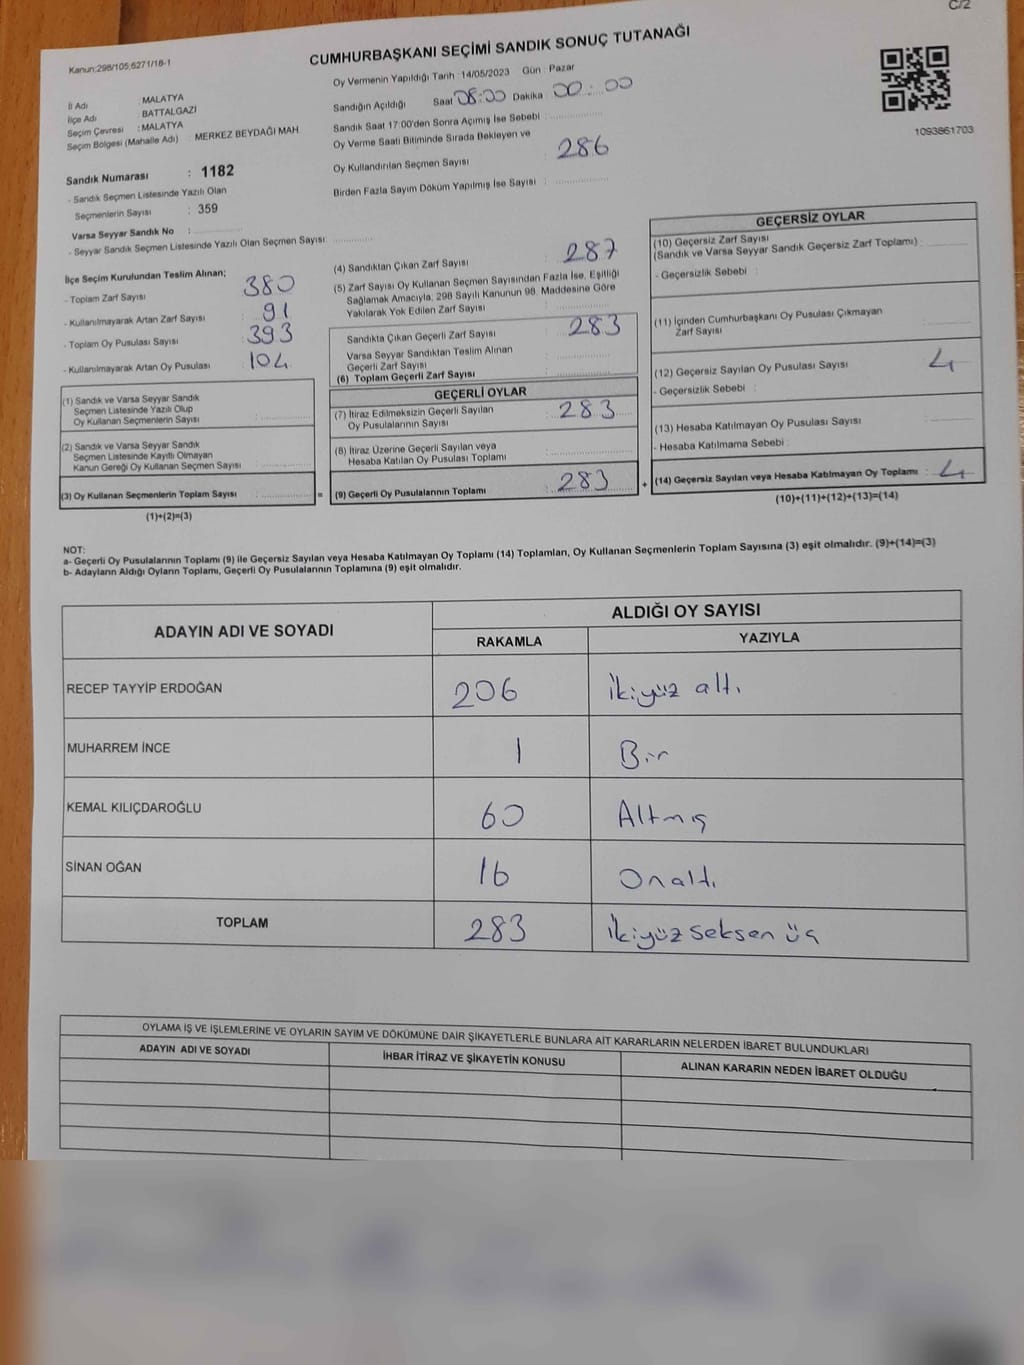 C/2
Kanun:298/105;6271/18-1
CUMHURBAŞKANI SEÇİMİ SANDIK SONUÇ TUTANAĞI
İl Adı : MALATYA
İlçe Adı : BATTALGAZİ
Seçim Çevresi : MALATYA
Seçim Bölgesi (Mahalle Adı) : MERKEZ BEYDAĞI MAH
Sandık Numarası : 1182
- Sandık Seçmen Listesinde Yazılı Olan
Seçmenlerin Sayısı : 359
Varsa Seyyar Sandık No :
- Seyyar Sandık Seçmen Listesinde Yazılı Olan Seçmen Sayısı :
Oy Vermenin Yapıldığı Tarih :14/05/2023 Gün : Pazar
Sandığın Açıldığı Saat 08:00 Dakika 00:00
Sandık Saat 17:00'den Sonra Açımış İse Sebebi :
Oy Verme Saati Bitiminde Sırada Bekleyen ve
Oy Kullandırılan Seçmen Sayısı : 286
Birden Fazla Sayım Döküm Yapılmış İse Sayısı :
1093861703
İlçe Seçim Kurulundan Teslim Alınan;
- Toplam Zarf Sayısı : 380
- Kullanılmayarak Artan Zarf Sayısı : 91
- Toplam Oy Pusulası Sayısı : 393
- Kullanılmayarak Artan Oy Pusulası : 104
(1) Sandık ve Varsa Seyyar Sandık
Seçmen Listesinde Yazılı Olup
Oy Kullanan Seçmenlerin Sayısı :
(2) Sandık ve Varsa Seyyar Sandık
Seçmen Listesinde Kayıtlı Olmayan
Kanun Gereği Oy Kullanan Seçmen Sayısı :
(3) Oy Kullanan Seçmenlerin Toplam Sayısı : =
(1)+(2)=(3)
(4) Sandıktan Çıkan Zarf Sayısı : 287
(5) Zarf Sayısı Oy Kullanan Seçmen Sayısından Fazla İse, Eşitliği
Sağlamak Amacıyla, 298 Sayılı Kanunun 98. Maddesine Göre
Yakılarak Yok Edilen Zarf Sayısı :
Sandıkta Çıkan Geçerli Zarf Sayısı : 283
Varsa Seyyar Sandıktan Teslim Alınan
Geçerli Zarf Sayısı :
(6) Toplam Geçerli Zarf Sayısı :
GEÇERLİ OYLAR
(7) İtiraz Edilmeksizin Geçerli Sayılan
Oy Pusulalarının Sayısı : 283
(8) İtiraz Üzerine Geçerli Sayılan veya
Hesaba Katılan Oy Pusulası Toplamı :
(9) Geçerli Oy Pusulalarının Toplamı : 283 +
GEÇERSİZ OYLAR
(10) Geçersiz Zarf Sayısı
(Sandık ve Varsa Seyyar Sandık Geçersiz Zarf Toplamı) :
- Geçersizlik Sebebi :
(11) İçinden Cumhurbaşkanı Oy Pusulası Çıkmayan
Zarf Sayısı :
(12) Geçersiz Sayılan Oy Pusulası Sayısı : 4
- Geçersizlik Sebebi :
(13) Hesaba Katılmayan Oy Pusulası Sayısı :
- Hesaba Katılmama Sebebi :
(14) Geçersiz Sayılan veya Hesaba Katılmayan Oy Toplamı : 4
(10)+(11)+(12)+(13)=(14)
NOT:
a- Geçerli Oy Pusulalarının Toplamı (9) ile Geçersiz Sayılan veya Hesaba Katılmayan Oy Toplamı (14) Toplamları, Oy Kullanan Seçmenlerin Toplam Sayısına (3) eşit olmalıdır. (9)+(14)=(3)
b- Adayların Aldığı Oyların Toplamı, Geçerli Oy Pusulalarının Toplamına (9) eşit olmalıdır.
ADAYIN ADI VE SOYADI ALDIĞI OY SAYISI
RAKAMLA YAZIYLA
RECEP TAYYİP ERDOĞAN 206 İkiyüz altı
MUHARREM İNCE 1 Bir
KEMAL KILIÇDAROĞLU 60 Altmış
SİNAN OĞAN 16 Onaltı
TOPLAM 283 İkiyüz seksen üç
OYLAMA İŞ VE İŞLEMLERİNE VE OYLARIN SAYIM VE DÖKÜMÜNE DAİR ŞİKAYETLERLE BUNLARA AİT KARARLARIN NELERDEN İBARET BULUNDUKLARI
ADAYIN ADI VE SOYADI İHBAR İTİRAZ VE ŞİKAYETİN KONUSU ALINAN KARARIN NEDEN İBARET OLDUĞU